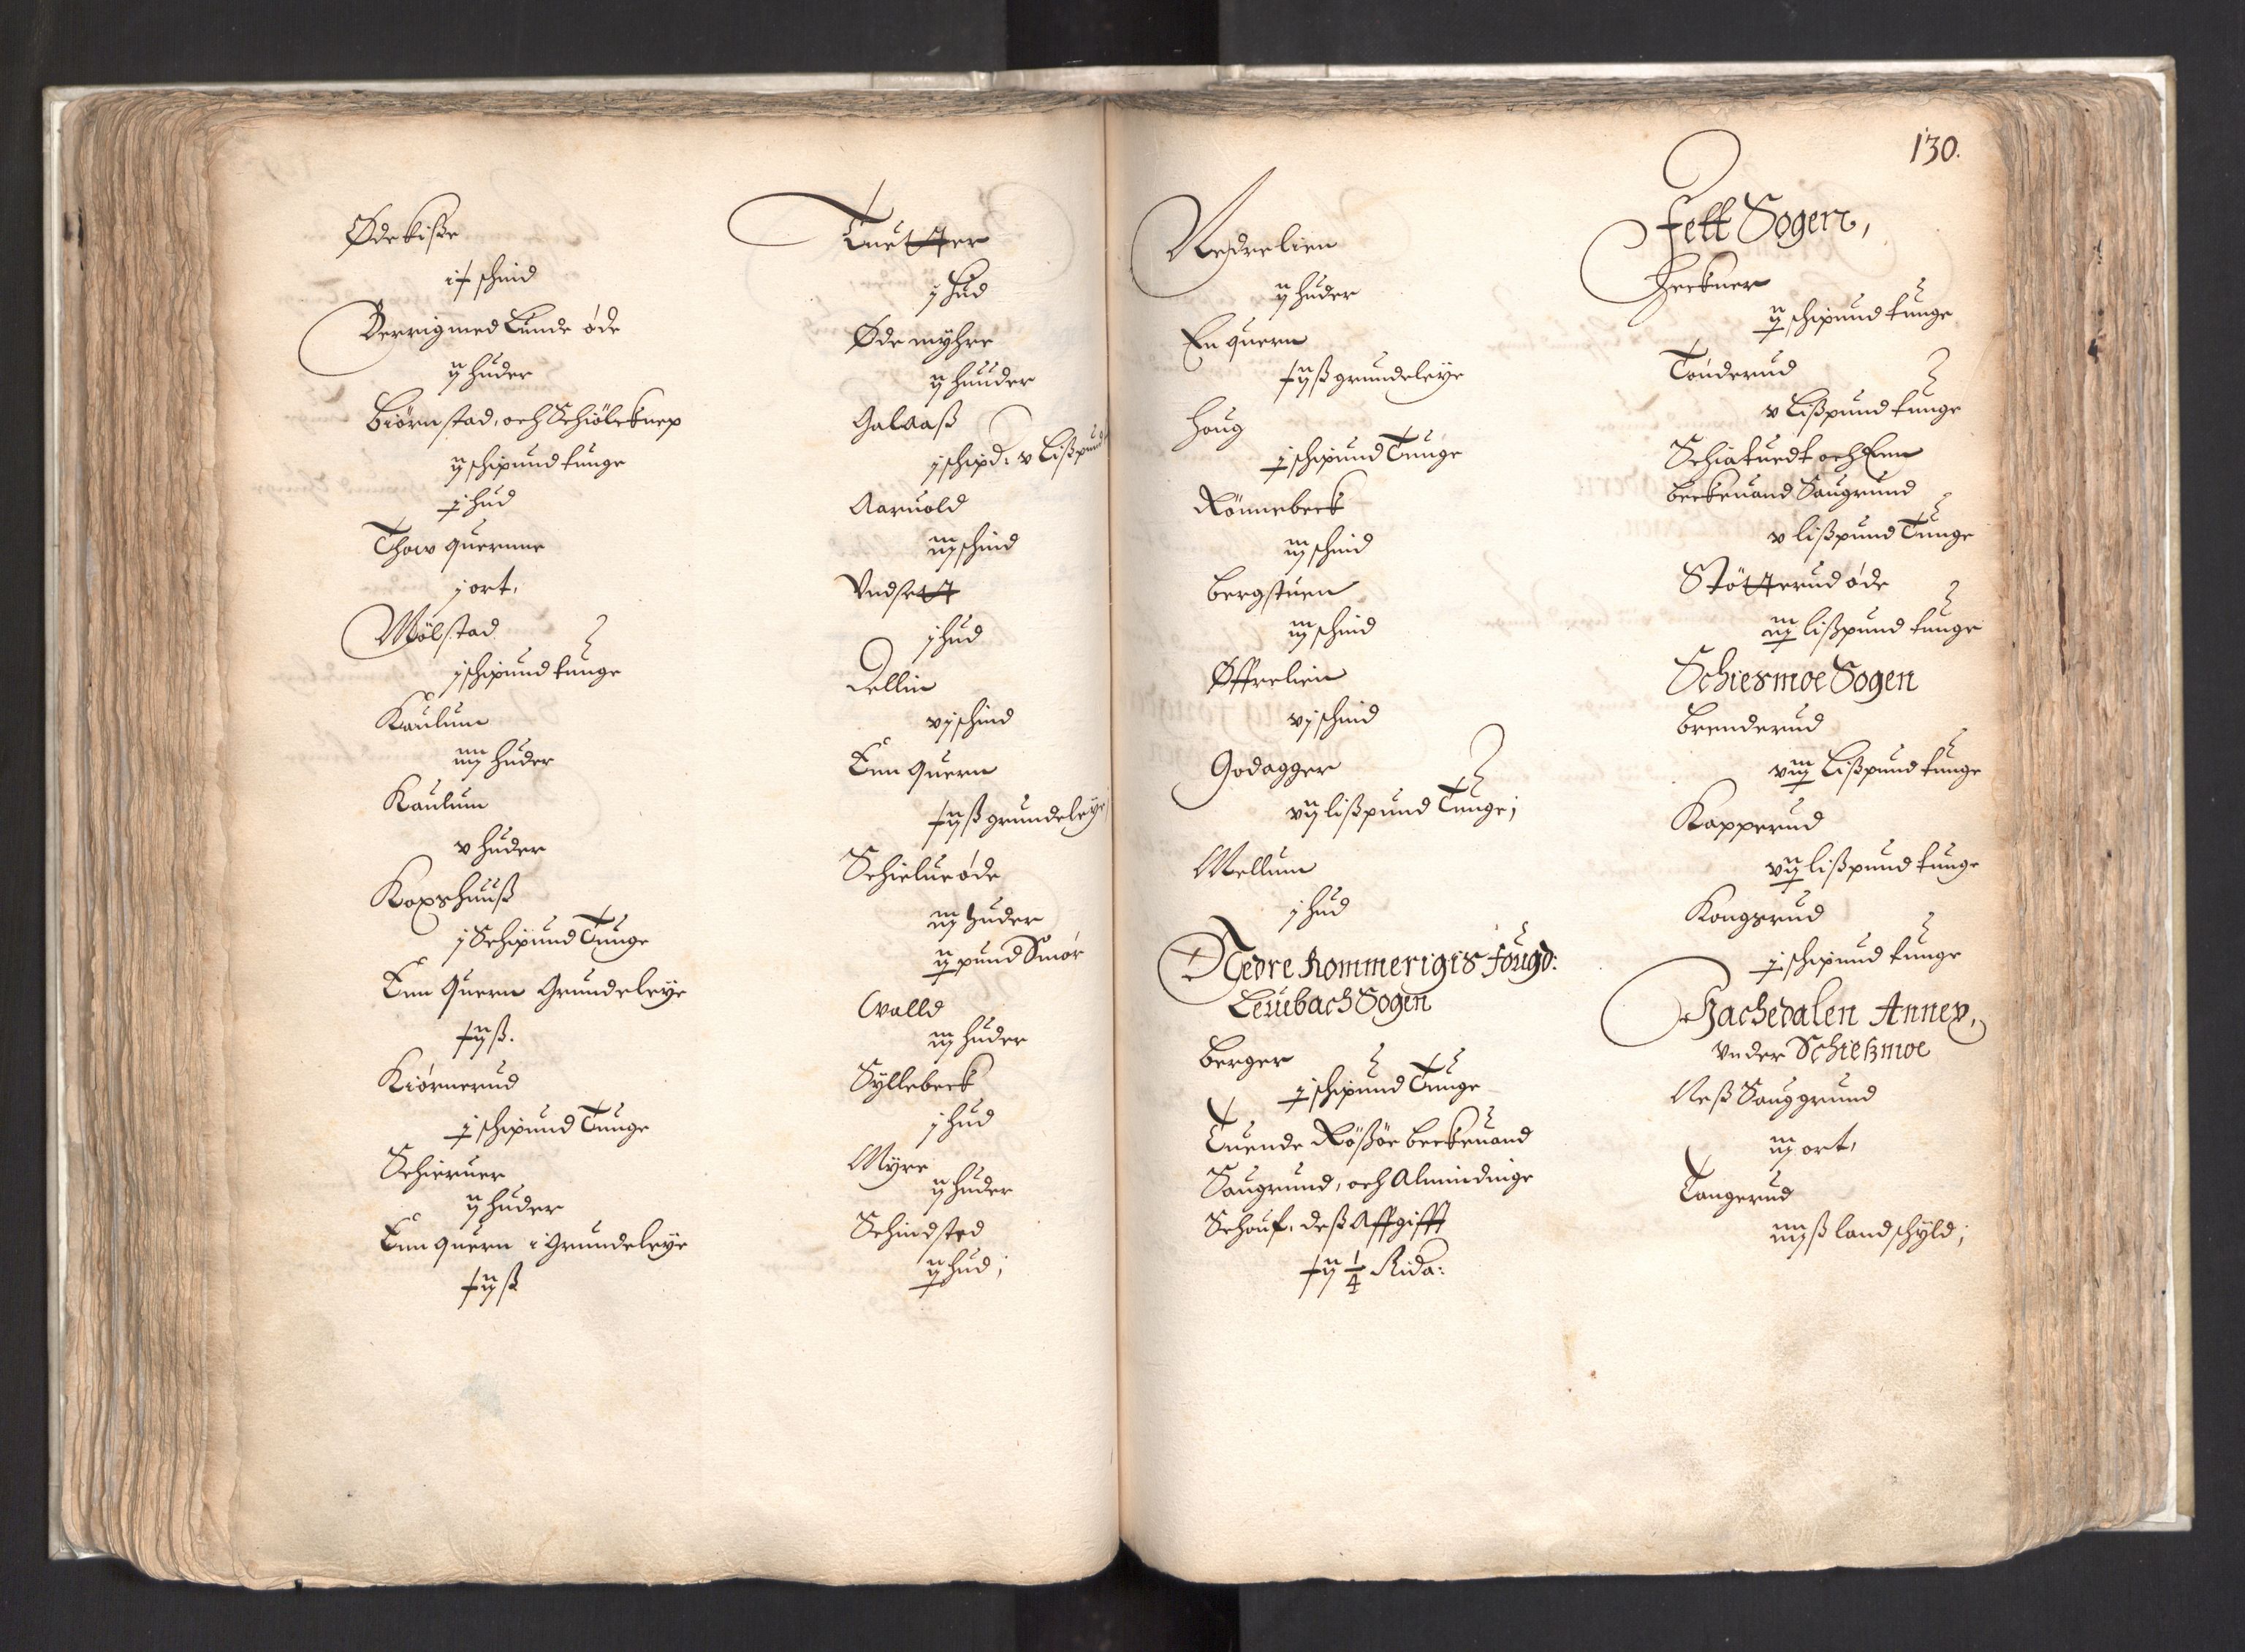 Ødekiße
i⨍ schind
Berrig med Lunde øde
ij huder
Biörnstad, och Schiöleknep
ij schipund tunge
j hud
Thow quernne
j ort.
Mölstad
j schipund tunge
Kaulum
iiij huder
Kaulum
v huder
Koxshuuß
j Schipund Tunge
Enn Quern Grundeleÿe
⨍ij ß.
Kiörnerud
j schipund Tunge
Schieruer
ij huder
Enn quern i Grundeleÿe
⨍ij ß
Tuetter
j hud
Øde mÿhre
ij huuder
Galaaß
j schipd. v Lißpund
Aaruold
iij schind
Vndsett
j hud
Dellin
vj schind
Enn Quern
⨍ij ß grundeleÿe
Schielue øde
iij huder
ij pund Smör
Walld
iij huder
Sÿllebeck
j hud
Mÿre
ij huder
Schindsted
ij hud;
130.
Nedrelien
ij huder
En quern
⨍ij ß grundeleÿe
Houg
j schipund Tunge
Rönnebeck
iij schind
Bergstuen
iij schind
Øffrelien
vj schind
Godagger
vij lißpund Tunge;
Mellum
j hud
Nedre Rommerigis Fougd:
Leuebach Sogen
Berger
j schipund Tunge
Tuende Rößöe Beckeuand
Saugrund, och Almindinge
Schouf, deß Affgifft
⨍ij 1/4 Rida:
Fett Sogen,
Heckner
ij schipund tunge
Tönderud
v Lißpund tunge
Schiatuedt och Enn
Beckeuand Saugrund
v lißpund Tunge
Stötterud øde
iij lißpund tunge
Schiesmoe Sogen
Brenderud
viij Lißpund tunge
Kapperud
vij lißpund tunge
Kongsrud
j schipund tunge
Hachedalen Annex,
Vnder Schießmoe
Neß Sauggrund
iij ort,
Tangerud
iiij ß landschÿld;